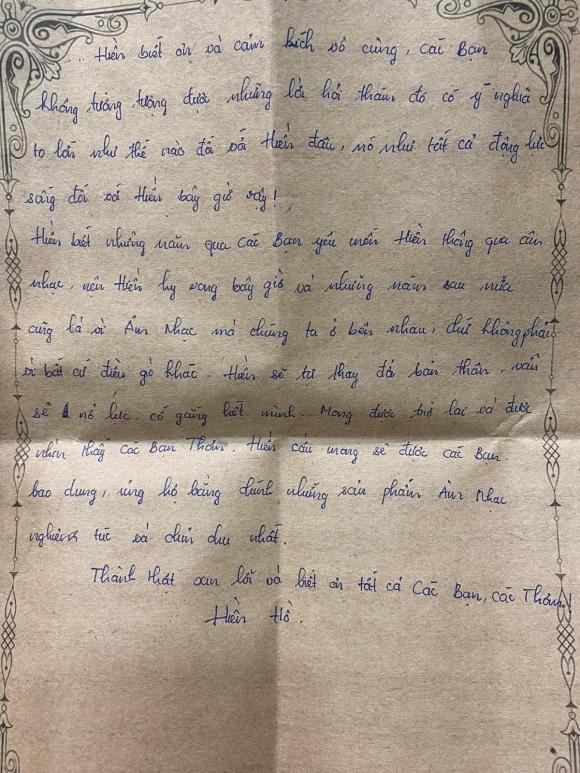 ... Hiền biết ơn và cảm kích vô cùng, các Bạn
không tưởng tượng được những lời hỏi thăm đó có ý nghĩa
to lớn như thế nào đối với Hiền đâu, nó như tất cả động lực
sống đối với Hiền bây giờ vậy!
Hiền biết những năm qua các Bạn yêu mến Hiền thông qua âm
nhạc, nên Hiền hy vọng bây giờ và những năm sau nữa
cũng là vì Âm Nhạc mà chúng ta ở bên nhau, chứ không phải
vì bất cứ điều gì khác. Hiền sẽ tự thay đổi bản thân, vẫn
sẽ nỗ lực, cố gắng hết mình. Mong được trở lại và được
nhìn thấy các Bạn Thơm. Hiền cầu mong sẽ được các Bạn
bao dung, ủng hộ bằng chính những sản phẩm Âm Nhạc
nghiêm túc và chỉn chu nhất.
Thành thật xin lỗi và biết ơn tất cả Các Bạn, các Thơm!
Hiền Hồ.